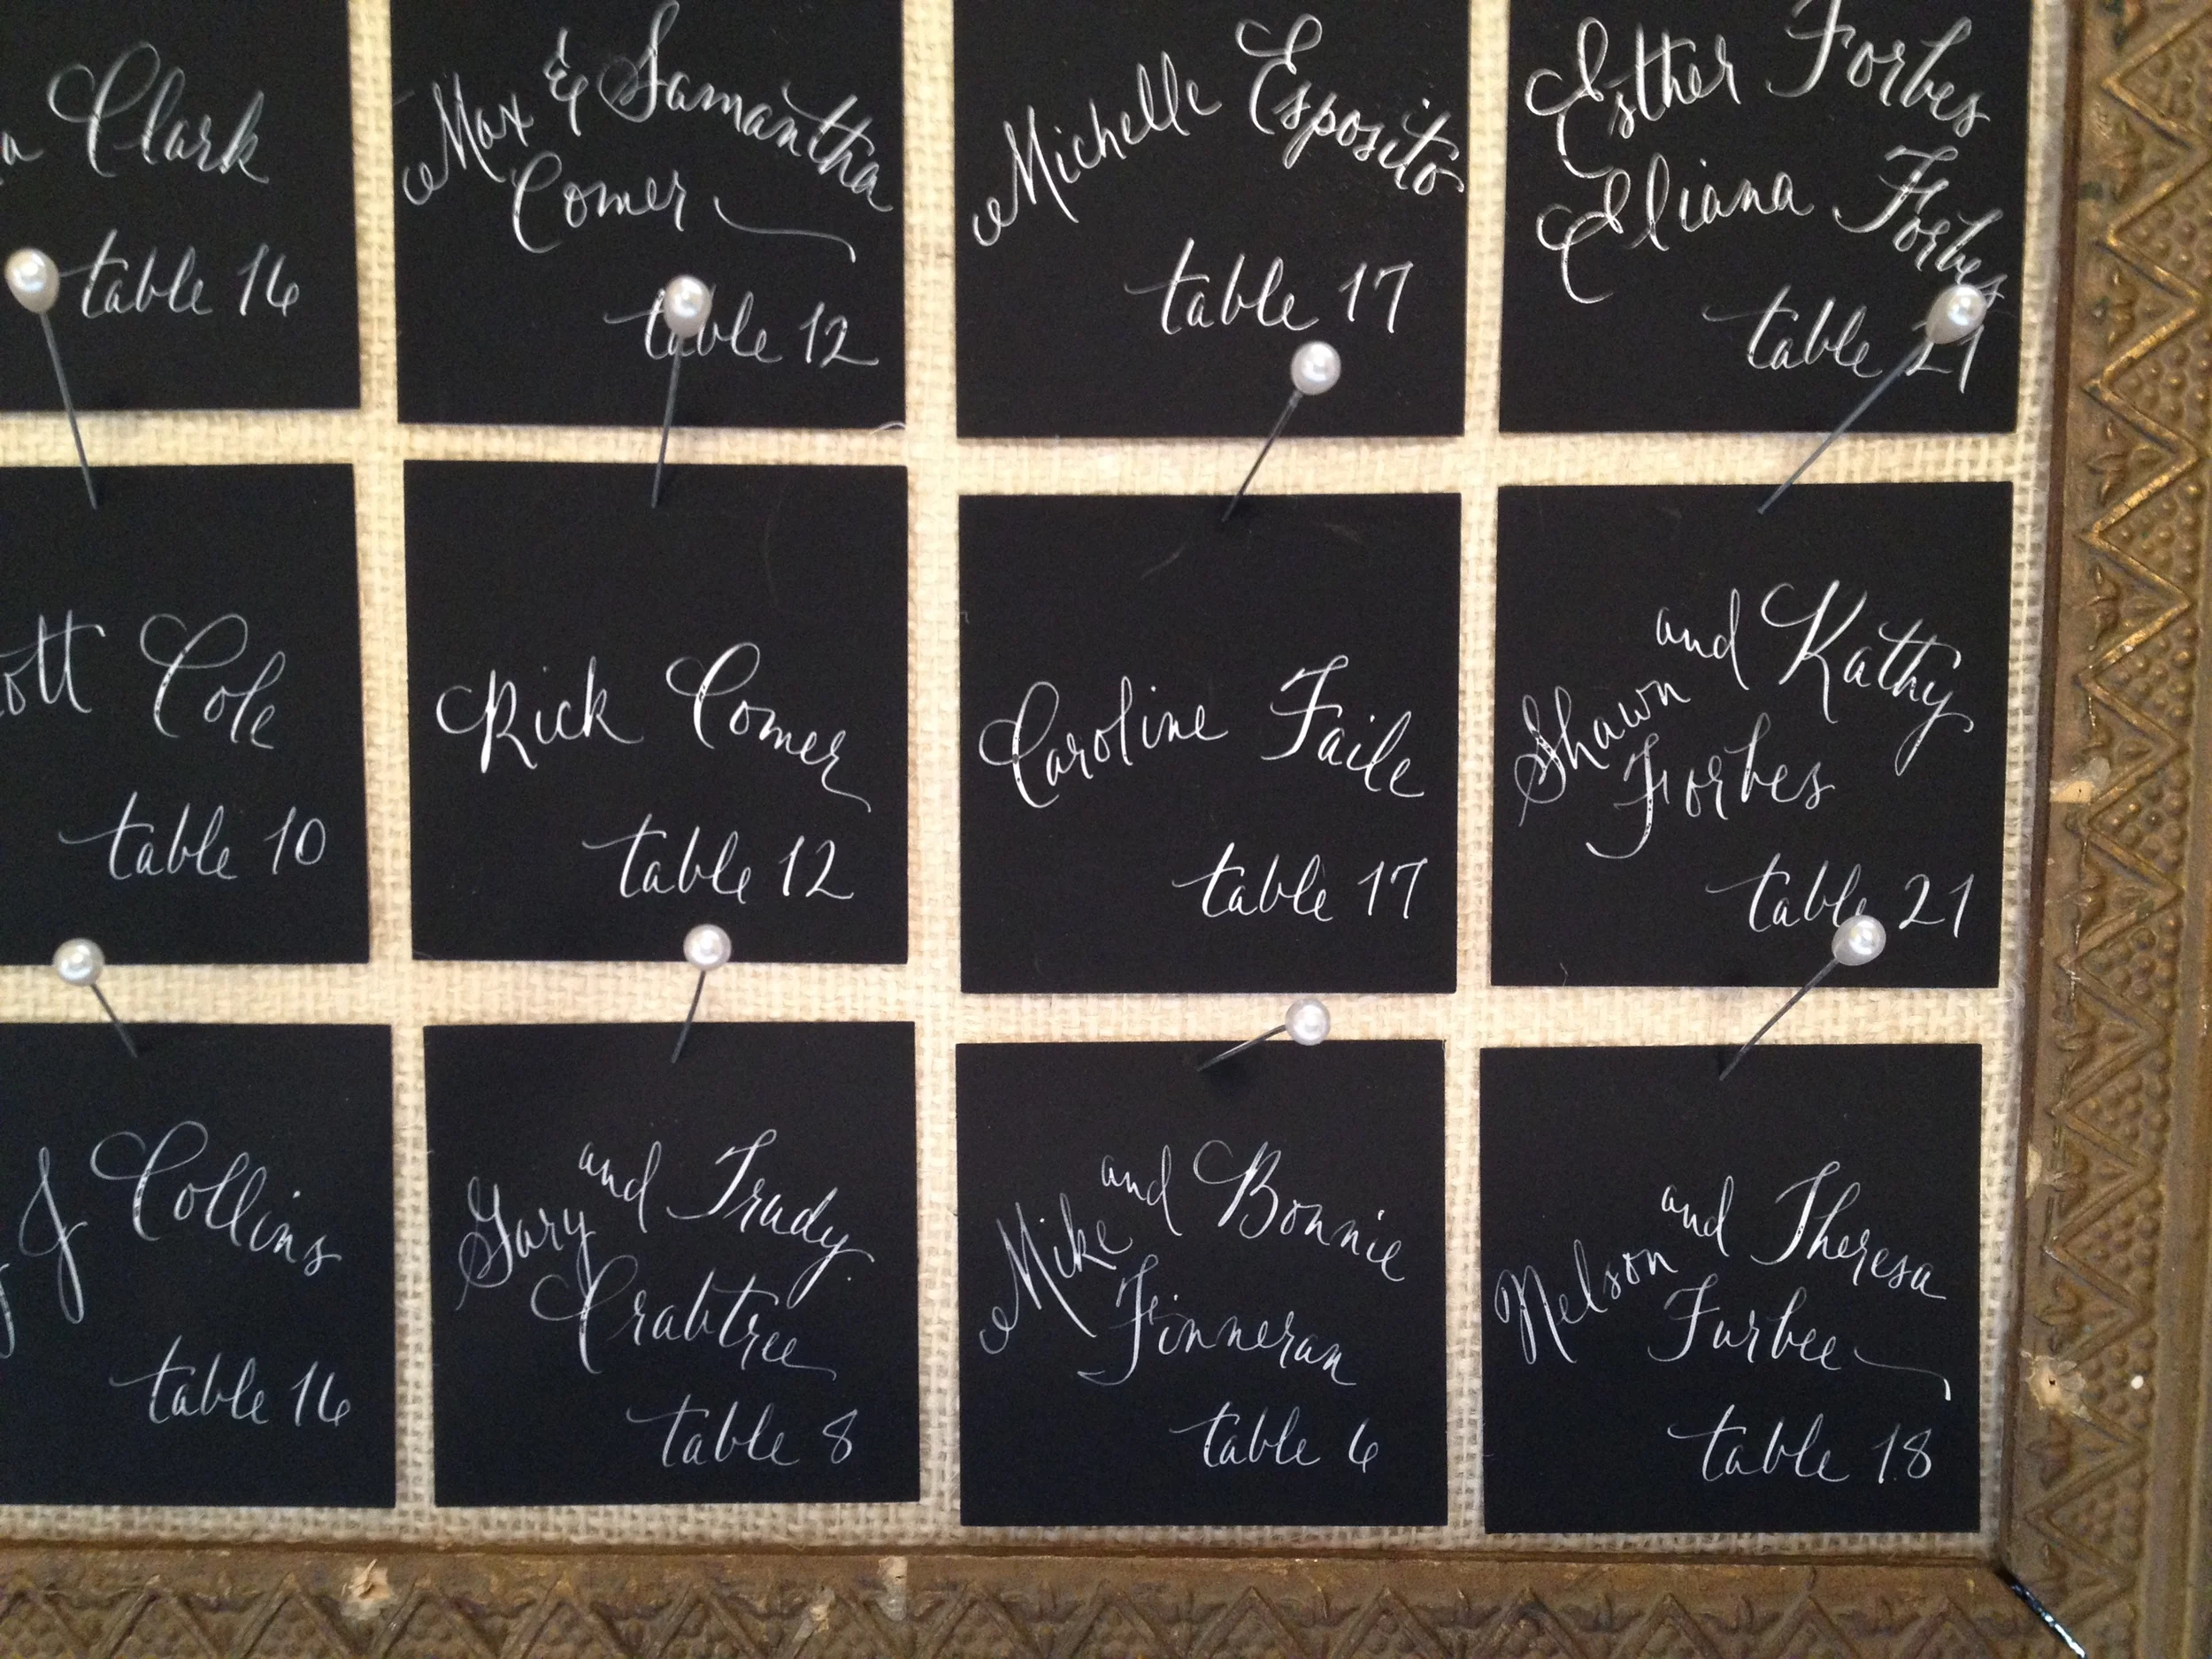 Clark
table 16
Max & Samantha
Comer
table 12
Michelle Esposito
table 17
Esther Forbes
Eliana Forbes
table 21
Cole
table 10
Rick Comer
table 12
Caroline Faile
table 17
Shawn and Kathy
Forbes
table 21
J Collins
table 16
Gary and Trudy
Crabtree
table 8
Mike and Bonnie
Finneran
table 6
Nelson and Theresa
Furbee
table 18